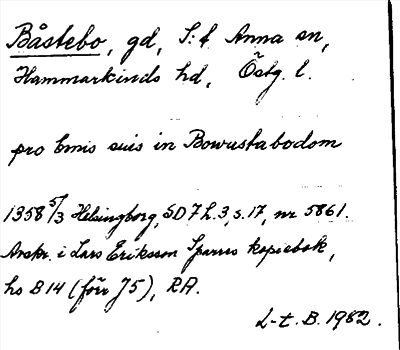 Båstebo, gd, S:t Anna sn,
Hammarkinds hd, Östg. l.
pro bonis suis in Bowustabodom
1358 5/3 Helsingborg, SD 7 h. 3, s. 17, nr 5861.
Avskr. i Lars Eriksson Sparres kopiebok,
hs B 14 (förr J 5), RA.
L-t. B. 1982.